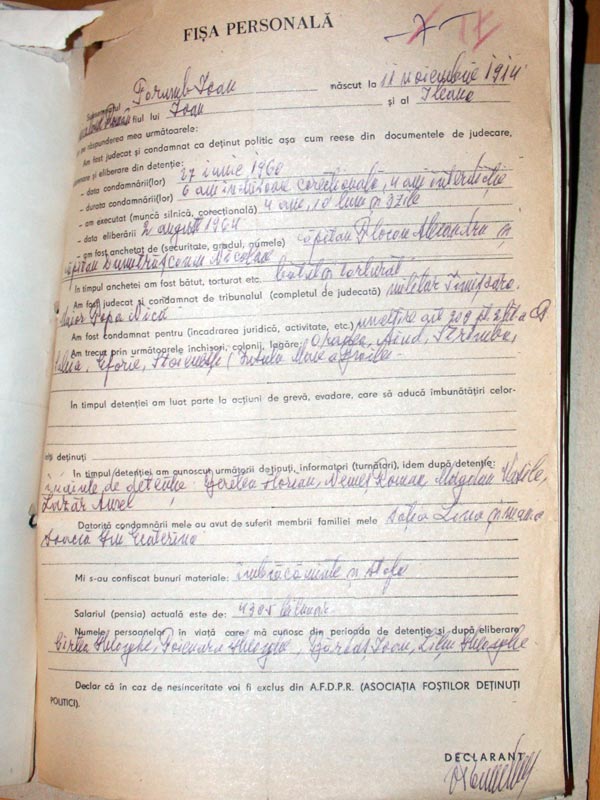 FIȘA PERSONALĂ
Subsemnatul Porumb Ioan născut la 11 noiembrie 1914
fiul lui Ioan și al Ileana
răspunderea mea următoarele:
Am fost judecat și condamnat ca deținut politic așa cum reese din documentele de judecare,
și eliberare din detenție:
- data condamnării(lor) 27 iunie 1960
- durata condamnării(lor) 6 ani închisoare corecțională, 4 ani interdicție
- am executat (muncă silnică, corecțională) 4 ani, 10 luni și zile
- data eliberării 2 august 1964
- am fost anchetat de (securitate, gradul, numele) căpitan Alexandru și
căpitan Nicolae
In timpul anchetei am fost bătut, torturat etc. bătut și torturat
Am fost judecat și condamnat de tribunalul (completul de judecată) militar Timișoara
Maior Popa Nică
Am fost condamnat pentru (încadrarea juridică, activitate, etc.) uneltire art 209
Am trecut prin următoarele închisori, colonii, lagăre: Oradea, Aiud,
Salcia, Stoenești, Insula Mare a Brăilei
In timpul detenției am luat parte la acțiuni de grevă, evadare, care să aducă îmbunătățiri celor-
lalți deținuți
In timpul detenției am cunoscut următorii deținuți, informatori (turnători), idem după detenție:
înainte de detenție: Florian, Nemeș Roman, Moldovan Vasile,
Lazăr Aurel
Datorită condamnării mele au avut de suferit membrii familiei mele soția Lina și mama
Ana Ecaterina
Mi s-au confiscat bunuri materiale: îmbrăcăminte și
Salariul (pensia) actuală este de: 4305 lei lunar
Numele persoanelor în viață care mă cunosc din perioada de detenție și după eliberare
Gheorghe, Poienaru Gheorghe, Ioan, Gheorghe
Declar că în caz de nesinceritate voi fi exclus din A.F.D.P.R. (ASOCIAȚIA FOȘTILOR DEȚINUȚI
POLITICI).
DECLARANT